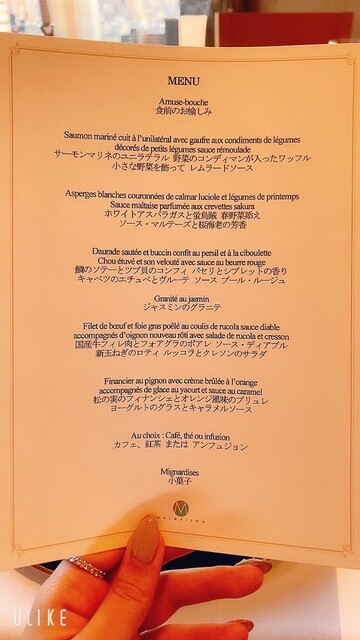 MENU
Amuse-bouche
食前のお愉しみ
Saumon mariné cuit à l'unilatéral avec gaufre aux condiments de légumes
décorés de petits légumes sauce rémoulade
サーモンマリネのユニラテラル 野菜のコンディマンが入ったワッフル
小さな野菜を飾って レムラードソース
Asperges blanches couronnées de calmar luciole et légumes de printemps
Sauce maltaise parfumée aux crevettes sakura
ホワイトアスパラガスと蛍烏賊 春野菜添え
ソース・マルテーズと桜海老の芳香
Daurade sautée et buccin confit au persil et à la ciboulette
Chou étuvé et son velouté avec sauce au beurre rouge
鯛のソテーとツブ貝のコンフィ パセリとシブレットの香り
キャベツのエチュベとヴルーテ ソース ブール・ルージュ
Granité au jasmin
ジャスミンのグラニテ
Filet de bœuf et foie gras poêlé au coulis de rucola sauce diable
accompagnés d'oignon nouveau rôti avec salade de rucola et cresson
国産牛フィレ肉とフォアグラのポアレ ソース・ディアブル
新玉ねぎのロティ ルッコラとクレソンのサラダ
Financier au pignon avec crème brûlée à l'orange
accompagnés de glace au yaourt et sauce au caramel
松の実のフィナンシェとオレンジ風味のブリュレ
ヨーグルトのグラスとキャラメルソース
Au choix : Café, thé ou infusion
カフェ、紅茶 または アンフュジョン
Mignardises
小菓子
M
ULIKE